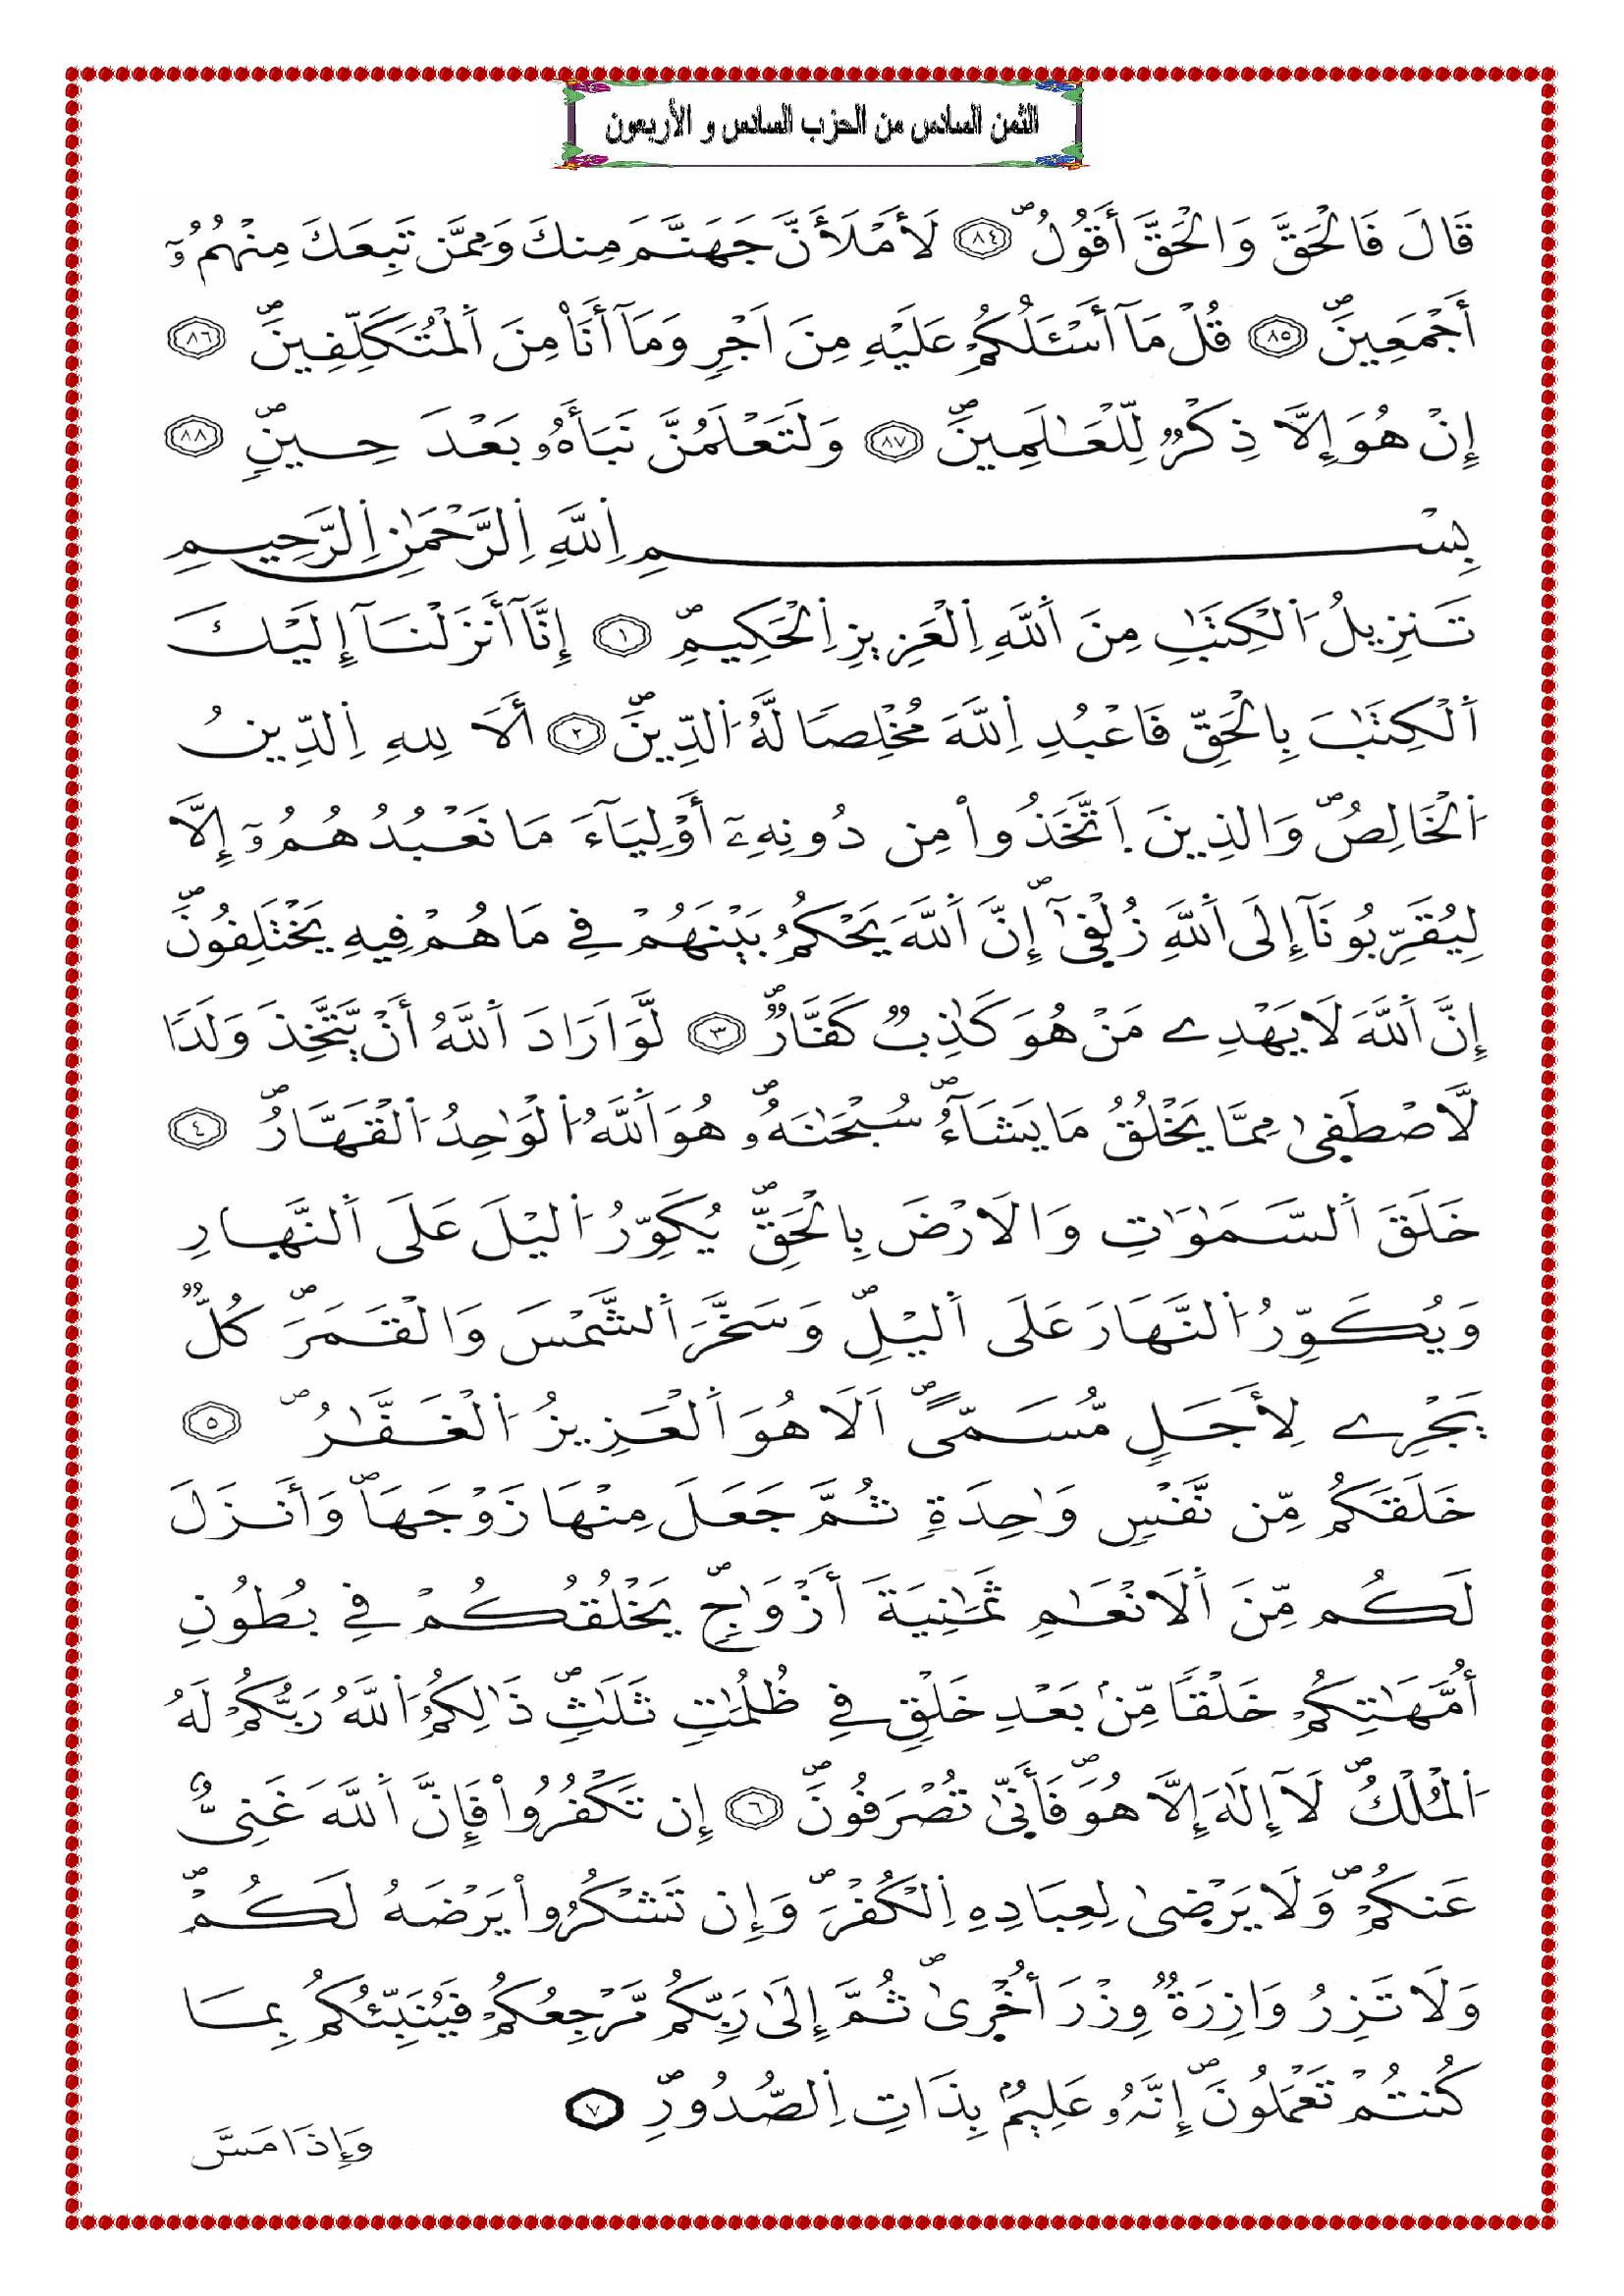 الثمن السادس من الحزب السادس و الأربعون
قَالَ فَالْحَقَّ وَالْحَقَّ أَقُولُ ۖ ٨٤ لَأَمْلَأَنَّ جَهَنَّمَ مِنكَ وَمِمَّن تَبِعَكَ مِنْهُمُۥٓ
أَجْمَعِينَ ۖ ٨٥ قُلْ مَآ أَسْـَٔلُكُمْ عَلَيْهِ مِنَ اَجْرٍ وَمَآ أَنَا۠ مِنَ اَ۬لْمُتَكَلِّفِينَ ۖ ٨٦
إِنْ هُوَ إِلَّا ذِكْرٌ لِّلْعَٰلَمِينَ ۖ ٨٧ وَلَتَعْلَمُنَّ نَبَأَهُۥ بَعْدَ حِينٍ ۖ ٨٨
بِسْمِ اِ۬للَّهِ اِ۬لرَّحْمَٰنِ اِ۬لرَّحِيمِ
تَنزِيلُ اُ۬لْكِتَٰبِ مِنَ اَ۬للَّهِ اِ۬لْعَزِيزِ اِ۬لْحَكِيمِ ۖ ١ إِنَّآ أَنزَلْنَآ إِلَيْكَ
اَ۬لْكِتَٰبَ بِالْحَقِّ فَاعْبُدِ اِ۬للَّهَ مُخْلِصًا لَّهُ اُ۬لدِّينَ ۖ ٢ أَلَا لِلهِ اِ۬لدِّينُ
اُ۬لْخَالِصُ ۖ وَالذِينَ اَ۪تَّخَذُوا۟ مِن دُونِهِۦٓ أَوْلِيَآءَ مَا نَعْبُدُهُمُۥٓ إِلَّا
لِيُقَرِّبُونَآ إِلَى اَ۬للَّهِ زُلْفَىٰٓ ۖ إِنَّ اَ۬للَّهَ يَحْكُمُ بَيْنَهُمْ فِے مَا هُمْ فِيهِ يَخْتَلِفُونَ ۖ
إِنَّ اَ۬للَّهَ لَا يَهْدِے مَنْ هُوَ كَٰذِبٌ كَفَّارٌ ۖ ٣ لَّوَ اَرَادَ اَ۬للَّهُ أَنْ يَّتَّخِذَ وَلَدًا
لَّاصْطَفَىٰ مِمَّا يَخْلُقُ مَا يَشَآءُ ۖ سُبْحَٰنَهُۥ ۖ هُوَ اَ۬للَّهُ اُ۬لْوَٰحِدُ اُ۬لْقَهَّارُ ۖ ٤
خَلَقَ اَ۬لسَّمَٰوَٰتِ وَالَارْضَ بِالْحَقِّ ۖ يُكَوِّرُ اُ۬ليْلَ عَلَى اَ۬لنَّهِارِ
وَيُكَوِّرُ اُ۬لنَّهَارَ عَلَى اَ۬ليْلِ ۖ وَسَخَّرَ اَ۬لشَّمْسَ وَالْقَمَرَ ۖ كُلٌّ
يَجْرِے لِأَجَلٍ مُّسَمًّى ۖ اَلَا هُوَ اَ۬لْعَزِيزُ اُ۬لْغَفَّٰرُ ۖ ٥
خَلَقَكُم مِّن نَّفْسٍ وَٰحِدَةٍ ثُمَّ جَعَلَ مِنْهَا زَوْجَهَا ۖ وَأَنزَلَ
لَكُم مِّنَ اَ۬لَانْعَٰمِ ثَمَٰنِيَةَ أَزْوَٰجٍ ۖ يَخْلُقُكُمْ فِے بُطُونِ
أُمَّهَٰتِكُمْ خَلْقًا مِّنۢ بَعْدِ خَلْقٍ فِے ظُلُمَٰتٍ ثَلَٰثٍ ۖ ذَٰلِكُمُ اُ۬للَّهُ رَبُّكُمْ لَهُ
اُ۬لْمُلْكُ ۖ لَآ إِلَٰهَ إِلَّا هُوَ ۖ فَأَنَّىٰ تُصْرَفُونَ ۖ ٦ إِن تَكْفُرُوا۟ فَإِنَّ اَ۬للَّهَ غَنِىٌّ
عَنكُمْ ۖ وَلَا يَرْضَىٰ لِعِبَادِهِ اِ۬لْكُفْرَ ۖ وَإِن تَشْكُرُوا۟ يَرْضَهُ لَكُمْ ۖ
وَلَا تَزِرُ وَازِرَةٌ وِزْرَ أُخْرَىٰ ۖ ثُمَّ إِلَىٰ رَبِّكُم مَّرْجِعُكُمْ فَيُنَبِّئُكُم بِمَا
كُنتُمْ تَعْمَلُونَ ۖ إِنَّهُۥ عَلِيمٌۢ بِذَاتِ اِ۬لصُّدُورِ ۖ ٧
وَإِذَا مَسَّ